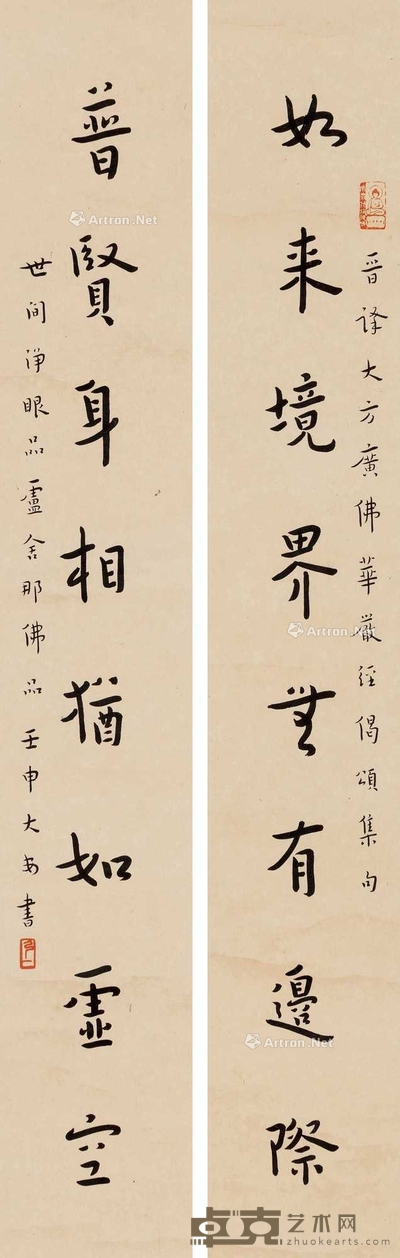 如来境界無有邊際
晋譯大方廣佛華嚴經偈頌集句
普賢身相猶如虛空
世间淨眼品盧舍那佛品 壬申大安書
Artron.Net
Artron.Net
Artron.Net
Artron.Net
卓克艺术网
zhuokearts.com